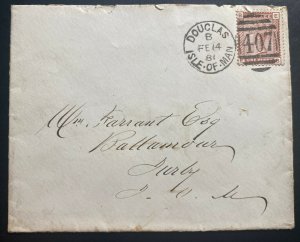 DOUGLAS
B
FE 14
81
ISLE·OF·MAN
407
Wm. Farrant Esq
Ballamour
Jurby
I. O. M